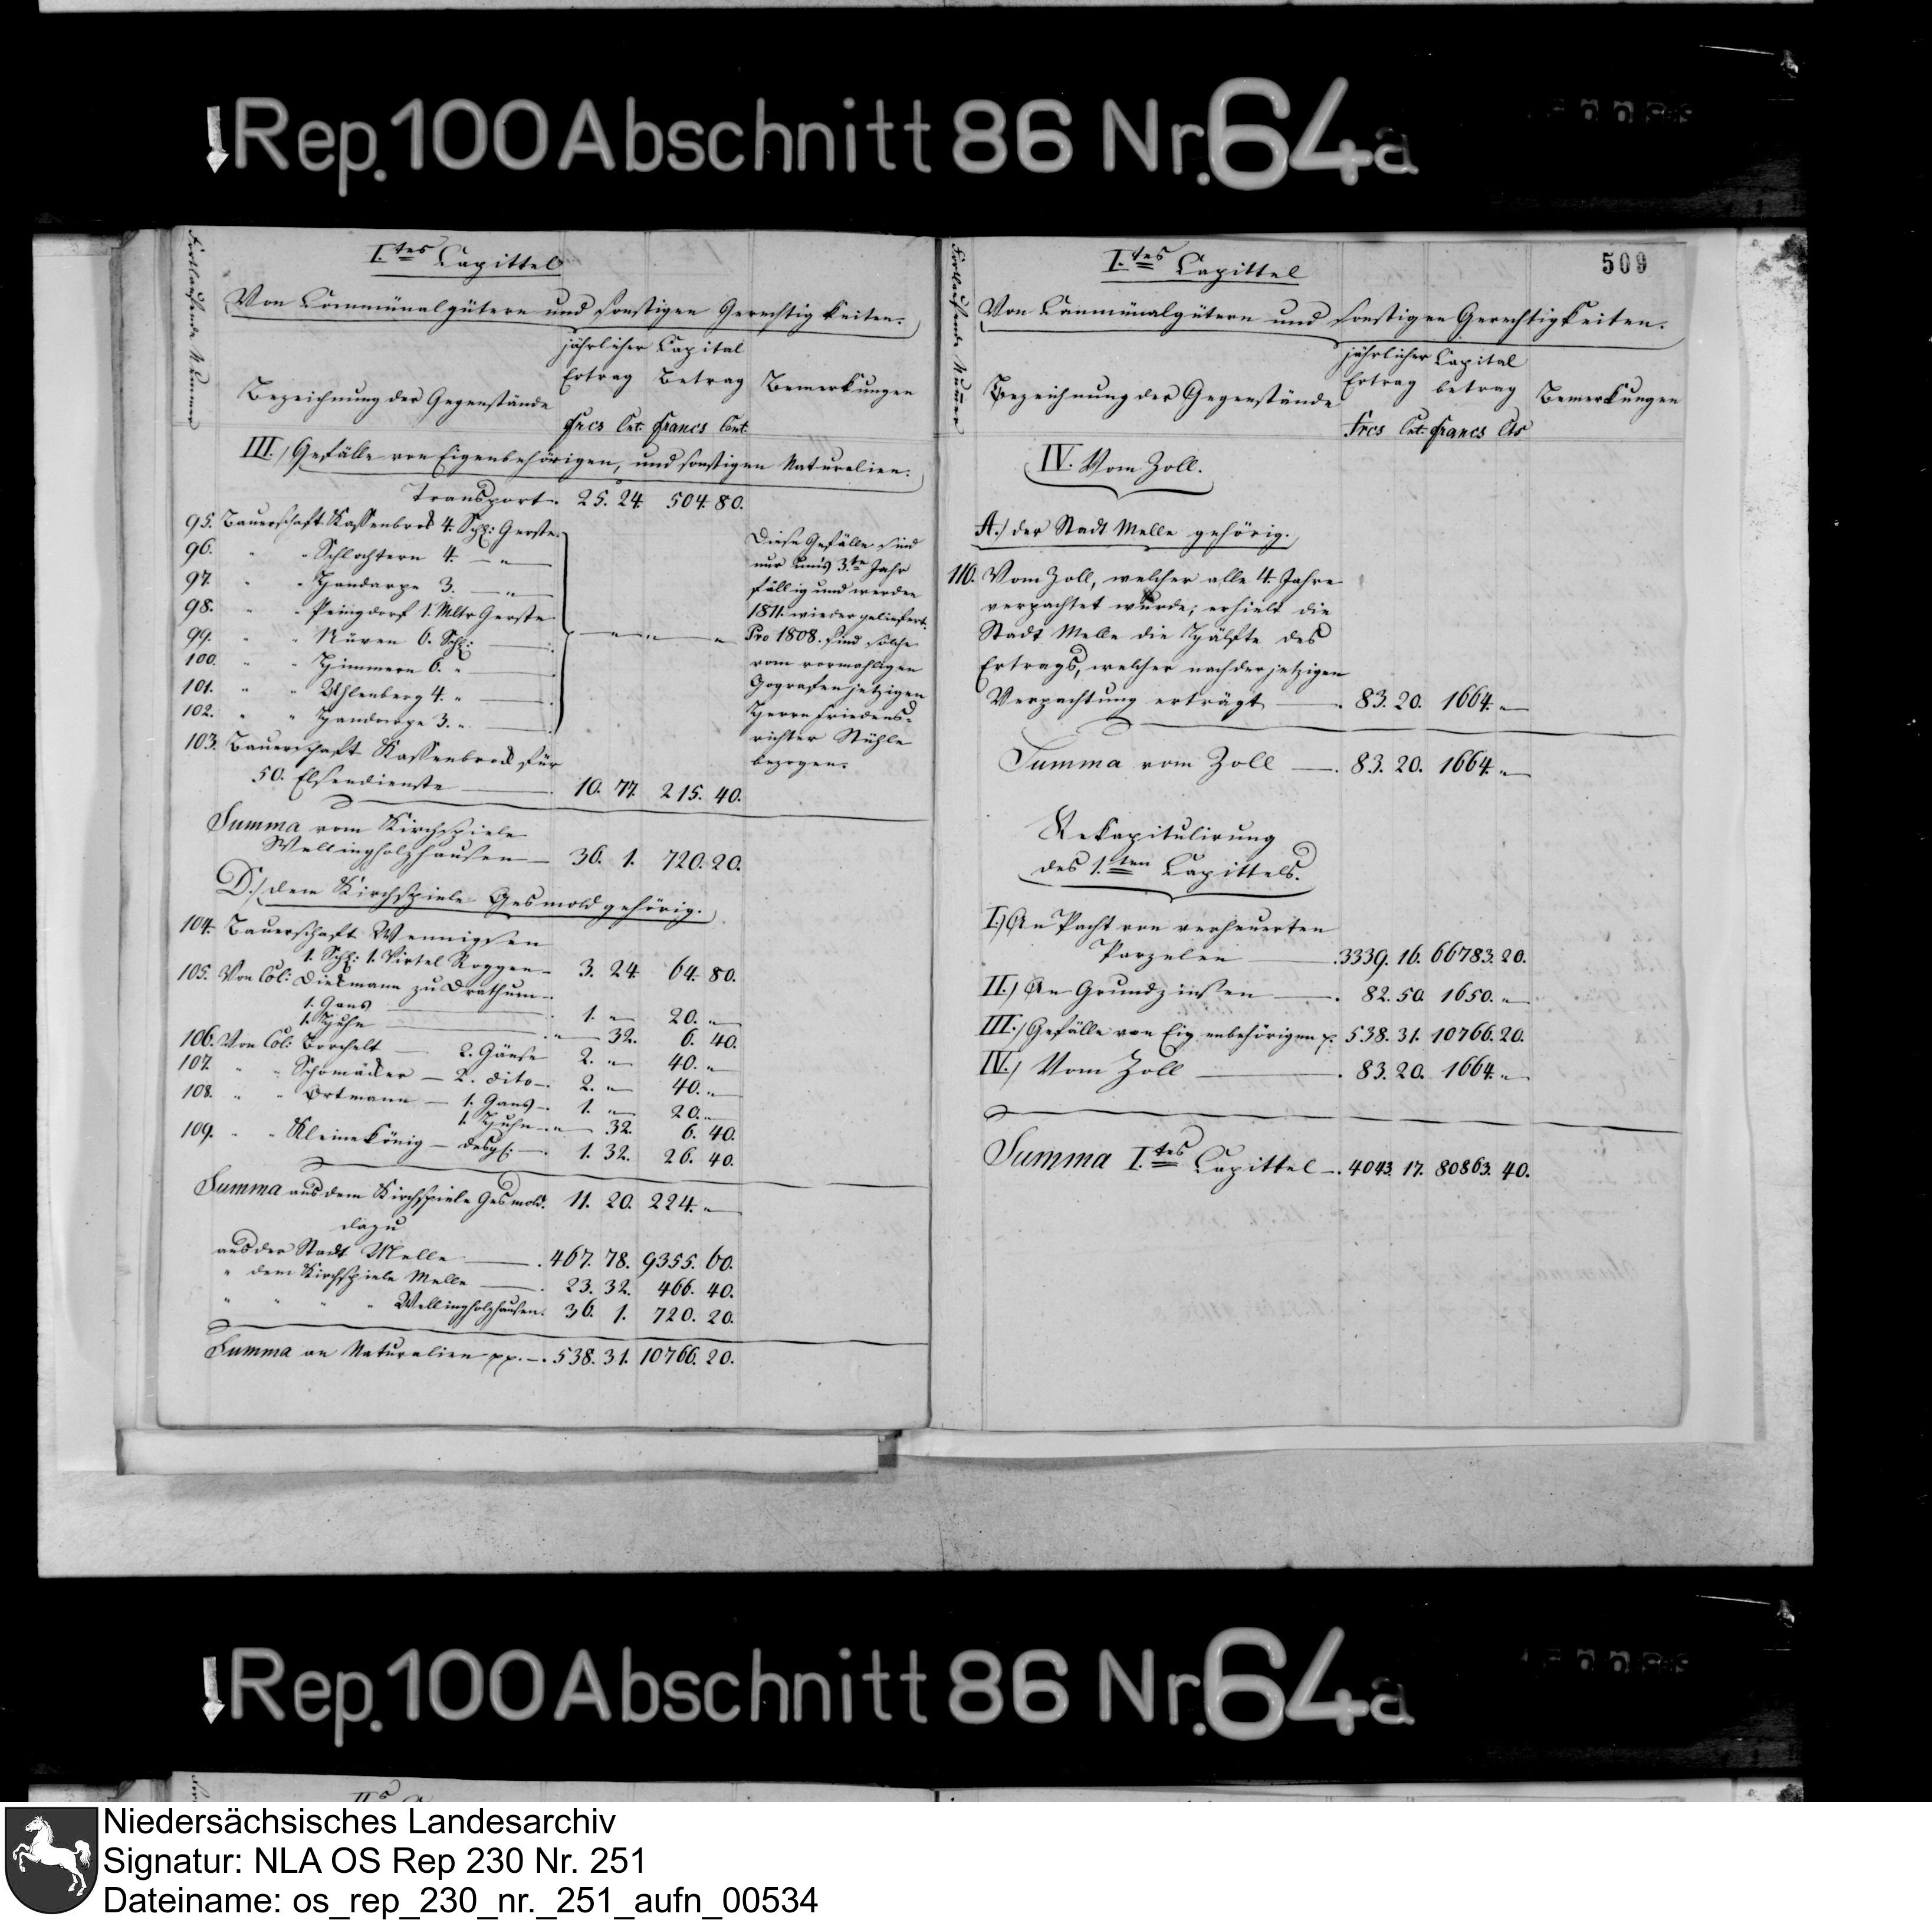 Rep. 100 Abschnitt 86 Nr. 64a
Fortlaufende Nummer
I.tes Capittel
Von Communalgütern und sonstigen Gerechtigkeiten.
Bezeichnung der Gegenstände
jährlicher Ertrag
Frcs Cnt.
Capital Betrag
Francs Cent.
Bemerkungen
III.) Gefälle von Eigenbehörigen, und sonstigen Naturalien.
Transport. 25. 24. 504. 80.
95. Bauerschaft Kassenbrock 4. Schfl: Gerste.
96. " " Schlochtern 4. — " —
97. " " Handarpe 3. — " —
98. " " Peingdorf 1. Mltr Gerste
99. " " Nüven 6. Schfl: —
100. " " Himmern 6. " —
101. " " Uhlenberg 4. " —
102. " " Handarpe 3. " —
Diese Gefälle sind
nur ums 3.te Jahr
fällig und werden
1811. wieder geliefert.
Pro 1808. sind solche
vom vormahligen
Gografen jetzigen
Herrn Friedens-
richter Stühle
bezogen.
103. Bauerschaft Kassenbrock für
50. Elsendienste — 10. 77. 215. 40.
Summa vom Kirchspiele
Wellingholzhausen — 36. 1. 720. 20.
D.) dem Kirchspiele Gesmold gehörig.
104. Bauerschaft Wennigsen
1. Schfl: 1. Virtel Roggen — 3. 24. 64. 80.
105. Von Col: Dieckmann zu Drathum —
1. Gans — 1. " — 20. " —
1. Huhn — " — 32. 6. 40.
106. Von Col: Borchelt — 2. Gänse 2. " — 40. " —
107. " " Schomäcker — 2. dito — 2. " — 40. " —
108. " " Ortmann — 1. Gans — 1. " — 20. " —
1. Huhn — " — 32. 6. 40.
109. " " Kleinekönig — desgl. — 1. 32. 26. 40.
Summa aus dem Kirchspiele Gesmold. 11. 20. 224. " —
dazu
aus der Stadt Melle — 467. 78. 9355. 60.
" dem Kirchspiele Melle — 23. 32. 466. 40.
" " " " Wellingholzhausen. 36. 1. 720. 20.
Summa an Naturalien pp. — 538. 31. 10766. 20.
509
Fortlaufende Num̄er
I.tes Capittel
Von Communalgütern und sonstigen Gerechtigkeiten.
Bezeichnung der Gegenstände
jährlicher Ertrag
Frcs Cnt.
Capital betrag
Francs Cts
Bemerkungen
IV. Vom Zoll.
A.) der Stadt Melle gehörig.
110. Vom Zoll, welcher alle 4. Jahre
verpachtet wurde; erhielt die
Stadt Melle die Hälfte des
Ertrags, welcher nach der jetzigen
Verpachtung erträgt — 83. 20. 1664. " —
Summa vom Zoll — 83. 20. 1664. " —
Rekapitulirung
des 1.ten Capittels.
I.) An Pacht von verheuerten
Parzelen — 3339. 16. 66783. 20.
II.) An Grundzinsen — 82. 50. 1650. " —
III.) Gefälle von Eigenbehörigen p. 538. 31. 10766. 20.
IV.) Vom Zoll — 83. 20. 1664. " —
Summa I.tes Capittel — 4043. 17. 80863. 40.
Rep. 100 Abschnitt 86 Nr. 64a
Niedersächsisches Landesarchiv
Signatur: NLA OS Rep 230 Nr. 251
Dateiname: os_rep_230_nr._251_aufn_00534